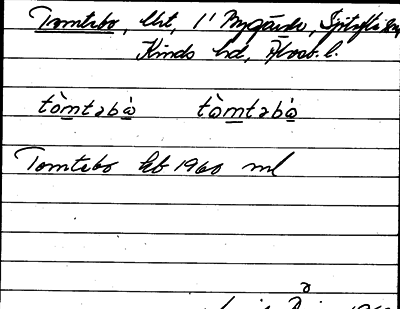 Tomtebo, lht, 1' Nygärde,
Kinds hd, Älvsb. l.
tòmtəbò tòmtəbò
Tomtebo kb 1960 ml